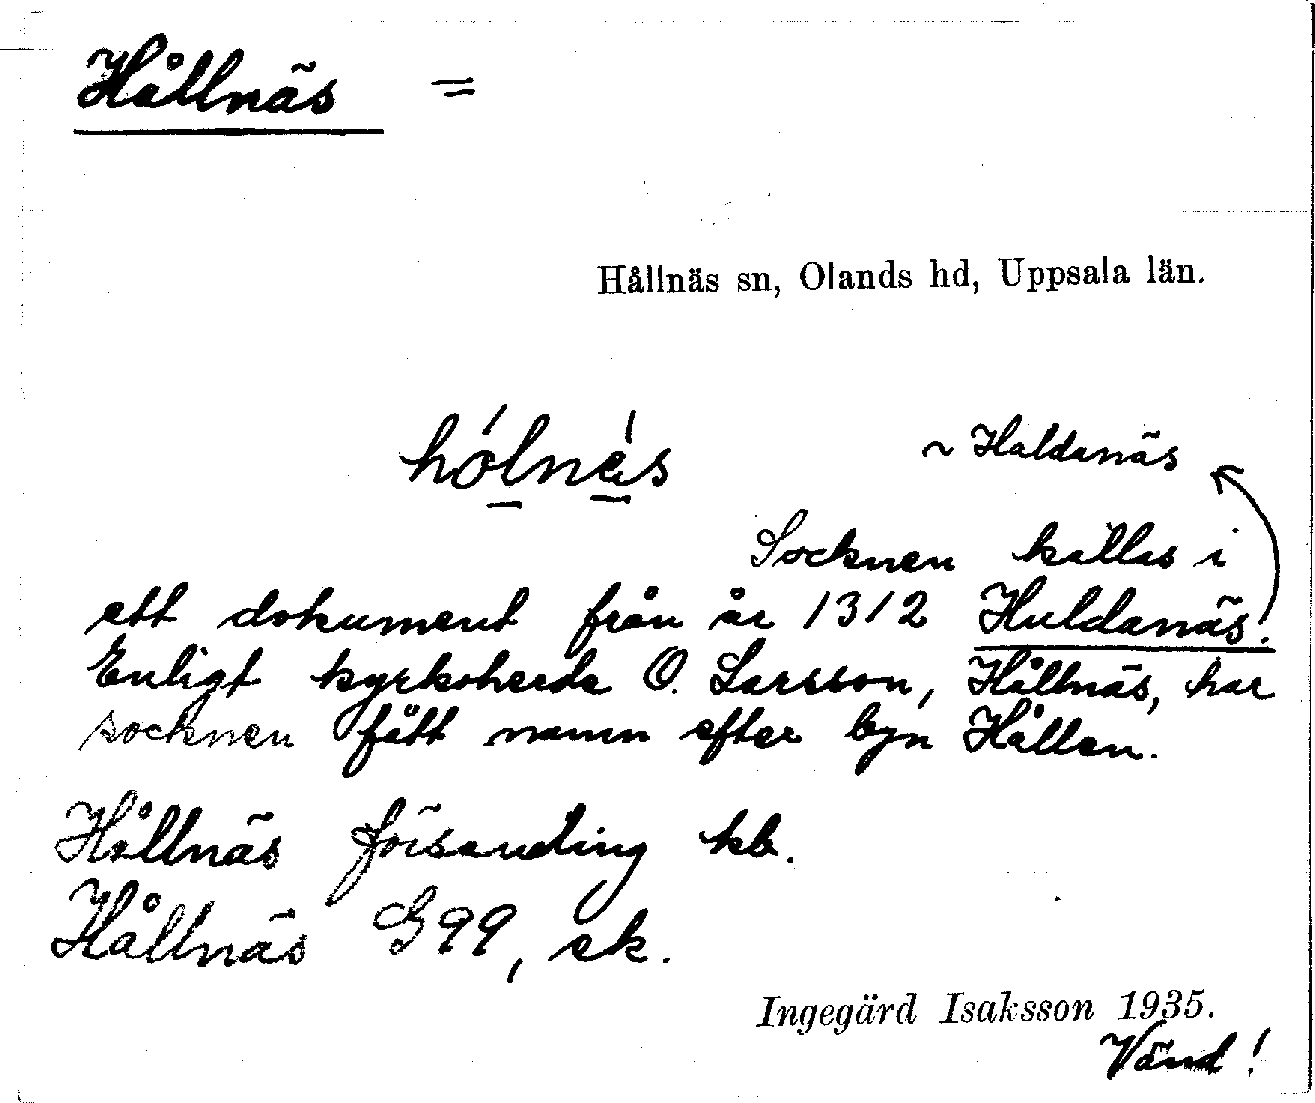 Hållnäs =
Hållnäs sn, Olands hd, Uppsala län.
hólnés ~ Haldanäs
Socknen kallas i
ett dokument från år 1312 Huldanäs.
Enligt kyrkoherde O. Larsson, Hållnäs, har
socknen fått namn efter byn Hållen.
Hållnäs församling kb.
Hållnäs G99, ek.
Ingegärd Isaksson 1935.
Vänd!